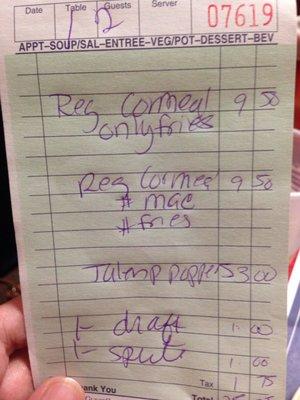 Date Table Guests Server 07619
12
APPT-SOUP/SAL-ENTREE-VEG/POT-DESSERT-BEV
Reg Cormeal 9 50
only fries
Reg Cormeal 9 50
# mac
# fries
Jalenp poppers 3 00
1- draft 1 00
1- sprite 1 00
Thank You Tax 1 75
Total